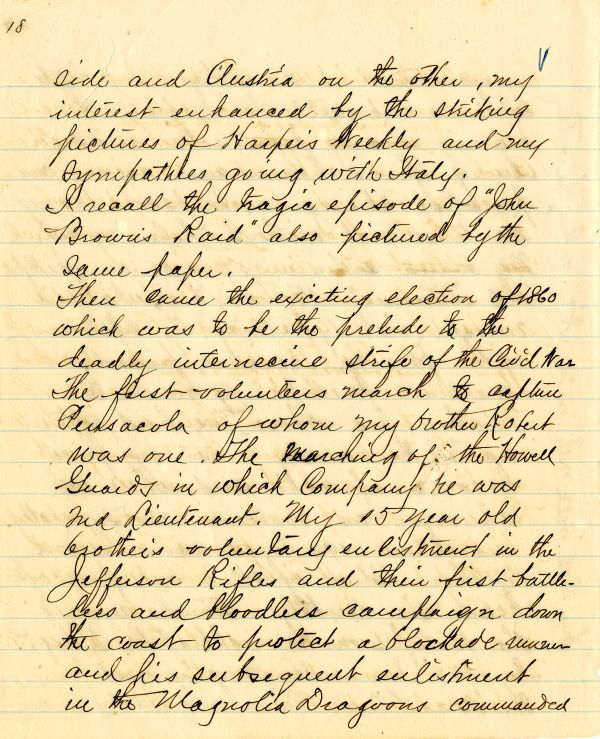 18
side and Austria on the other, my
interest enhanced by the striking
pictures of Harpers Weekly and my
sympathies going with Italy.
I recall the tragic episode of "John
Brown's Raid" also pictured by the
same paper.
Then came the exciting election of 1860
which was to be the prelude to the
deadly internecine strife of the Civil War
The first volunteers march to capture
Pensacola of whom my brother Robert
was one. The marching of the Howell
Guards in which Company he was
2nd Lieutenant. My 15 year old
brother's voluntary enlistment in the
Jefferson Rifles and their first battle-
less and bloodless campaign down
the coast to protect a blockade runner
and his subsequent enlistment
in the Magnolia Dragoons commanded